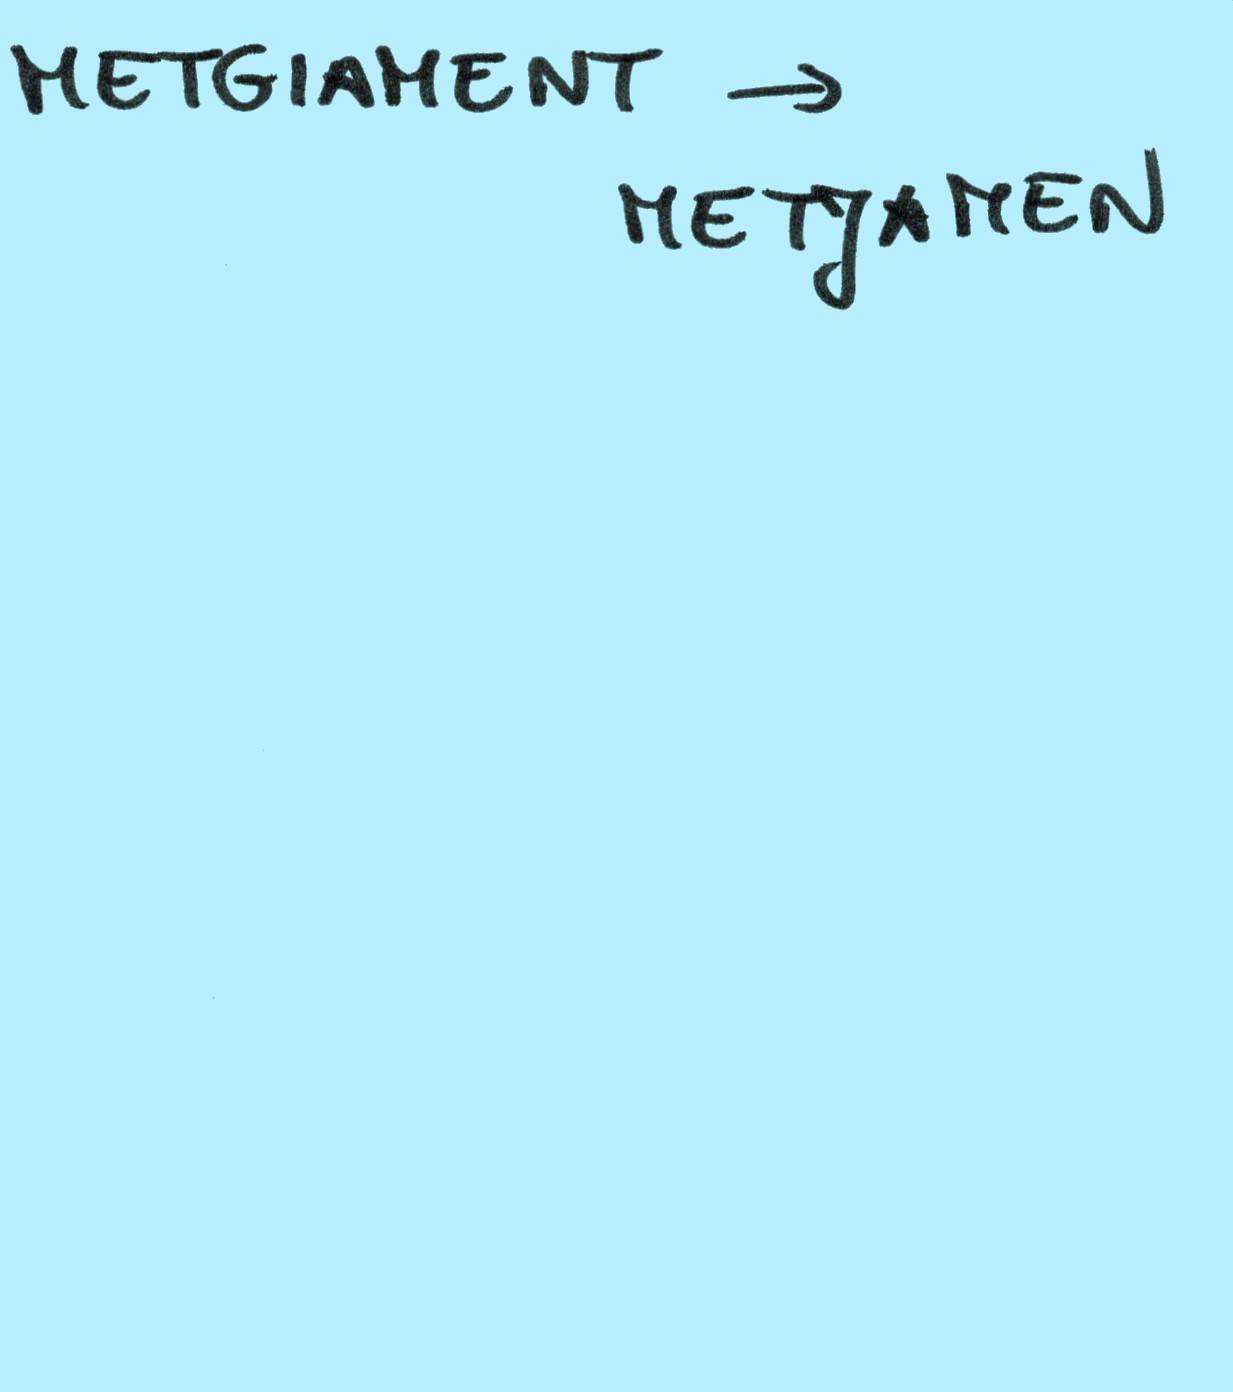 METGIAMENT →
METJAMEN